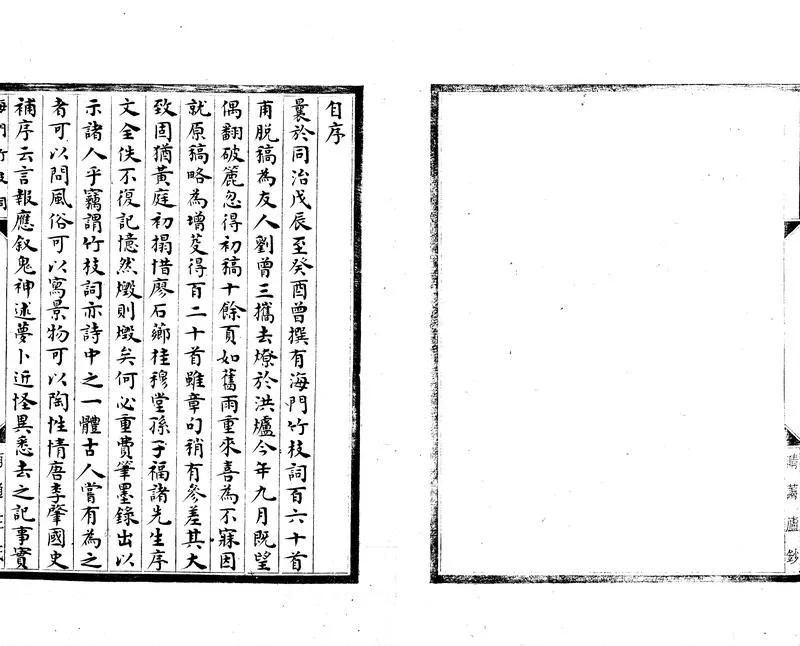 自序
曩於同治戊辰至癸酉曾撰有海門竹枝詞百六十首
甫脫稿為友人劉曾三攜去燎於洪爐今年九月既望
偶翻破簏忽得初稿十餘頁如舊雨重來喜為不寐因
就原稿略為增芟得百二十首雖章句稍有參差其大
致固猶黃庭初搨惜廖石薌桂穆堂孫子福諸先生序
文全佚不復記憶然燬則燬矣何必重費筆墨錄出以
示諸人乎竊謂竹枝詞亦詩中之一體古人嘗有為之
者可以問風俗可以寫景物可以陶性情唐李肇國史
補序云言報應叙鬼神述夢卜近怪異悉去之記事實
海門竹枝詞
廬鈔